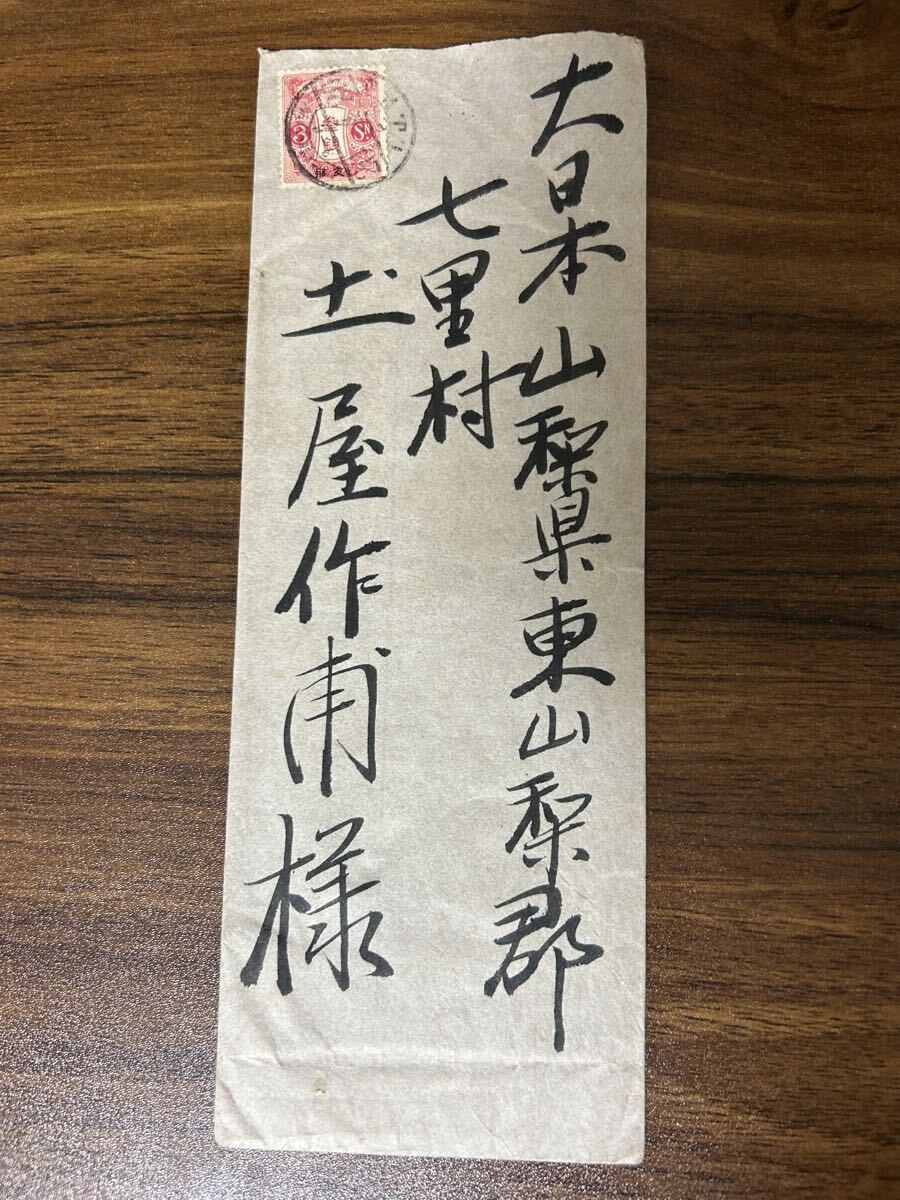 大日本山梨県東山梨郡
七里村
土屋作甫様
3
参銭
Sn
支那